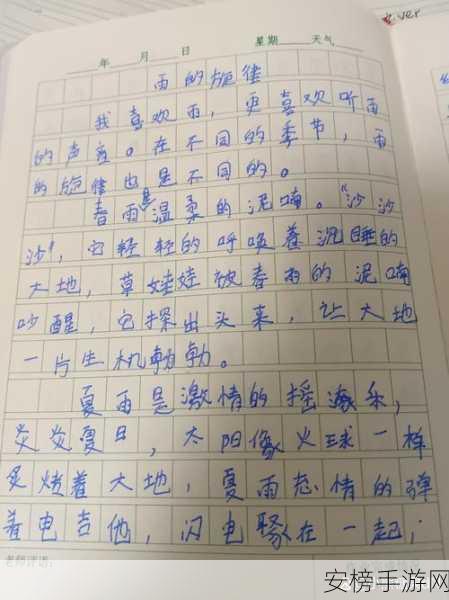 年 月 日 星期 天气
雨的旋律
我喜欢雨，更喜欢听雨
的声音。在不同的季节，雨
的旋律也是不同的。
春雨是温柔的泥喃。“沙沙
沙”，它轻轻的呼唤着沉睡的
大地，草娃娃被春雨的泥喃
吵醒，它探出头来，让大地
一片生机勃勃。
夏雨是激情的摇滚乐，
炎炎夏日，太阳像火球一样
炙烤着大地，夏雨忘情的弹
着电吉他，闪电聚在一起；
老师评语：
安榜手游网